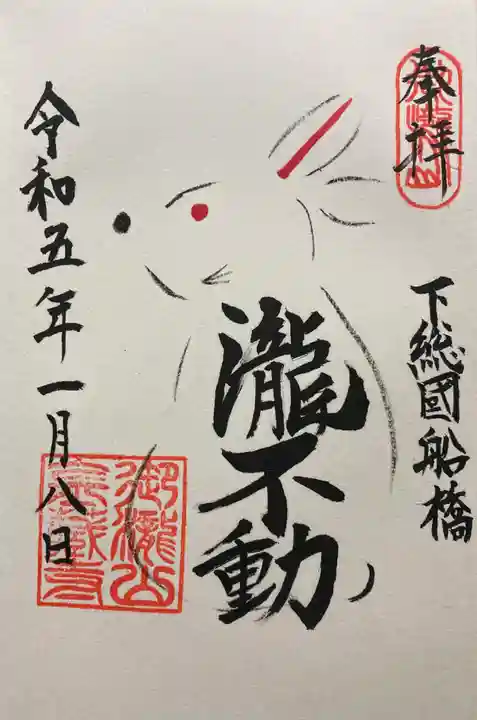 奉拝
下総國船橋
瀧不動
令和五年一月八日
御瀧山
金蔵寺